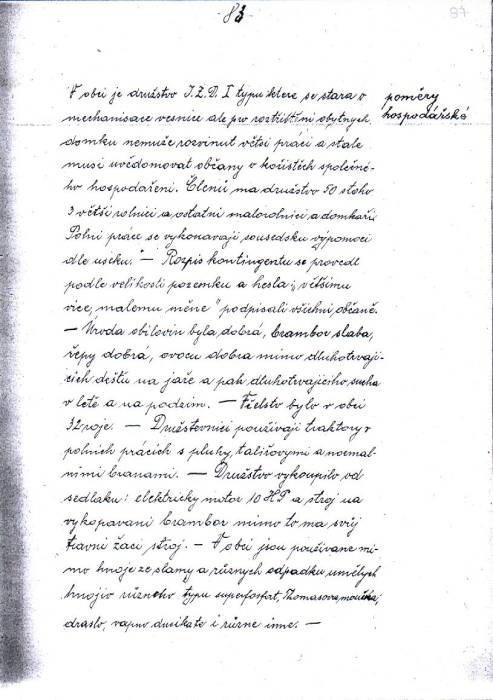 83
87
poměry
hospodářské
V obci je družstvo J.Z.D. I typu které se stara o
mechanisace vesnice ale pro roztříštění obytných
domku nemuže rozvinut větší práci a stale
musi uvědomovat občany o kořistích společné-
ho hospodařeni. Členů ma družstvo 50 stoho
3 větší rolnici a ostatni malorolnici a domkáři.
Polni práce se vykonavaji sousedsku výpomoci
dle useku." — Rozpis kontingentu se provedl
podle velikosti pozemku a hesla „ většimu
vice, malemu méne " podpisali všichni občané.
— Úroda obilovin byla dobrá, brambor slaba,
řepy dobrá, ovocu dobra mimo dluhotrvaji-
cich deštu na jaře a pak dluhotrvajiciho sucha
v letě a na podzim. — Včelstvo bylo v obci
32 roje. — Družstevnici použivaji traktory v
polnich prácich s pluhy, talířovymi a normal-
nimi branami. — Družstvo vykoupilo od
sedlaku: elektricky motor 10 HP a stroj na
vykopavani brambor mimo to ma svůj
travni žací stroj. — V obci jsou použivane mi-
mo hnoje ze slamy a různych odpadku umělych
hnojiv různeho typu superfosfat, Thomasova moučka,
draslo, vapno dusikate i různe inne. —